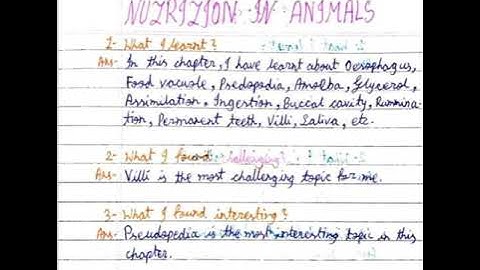 NUTRITION IN ANIMALS
1- What I learnt?
Ans- In this chapter, I have learnt about Oesophagus,
Food vacuole, Psedopodia, Amoeba, Glycerol,
Assimilation, Ingestion, Buccal cavity, Rumina-
tion, Permanent teeth, Villi, Saliva, etc.
2- What I found challenging?
Ans- Villi is the most challenging topic for me.
3- What I found interesting?
Ans- Pseudopedia is the most interesting topic in this
chapter.